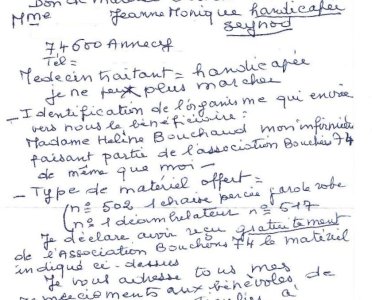 Don de
Mme Jeanne Monique handicapée
Seynod
74600 Annecy
Tel =
Medecin traitant = handicapée
je ne peux plus marcher
- Identification de l'organisme qui envoie
vers nous le bénéficiaire :
Madame Heline Bouchaud mon infirmière
faisant partie de l'association Bouchons 74
de même que moi -
- Type de matériel offert =
(n° 502 1 chaise percée garde robe
(n° 1 déambulateur n° 517
Je déclare avoir reçu gratuitement
de l'Association Bouchons 74 le matériel
indiqué ci-dessus
Je vous adresse tous mes
remerciements aux bénévoles de